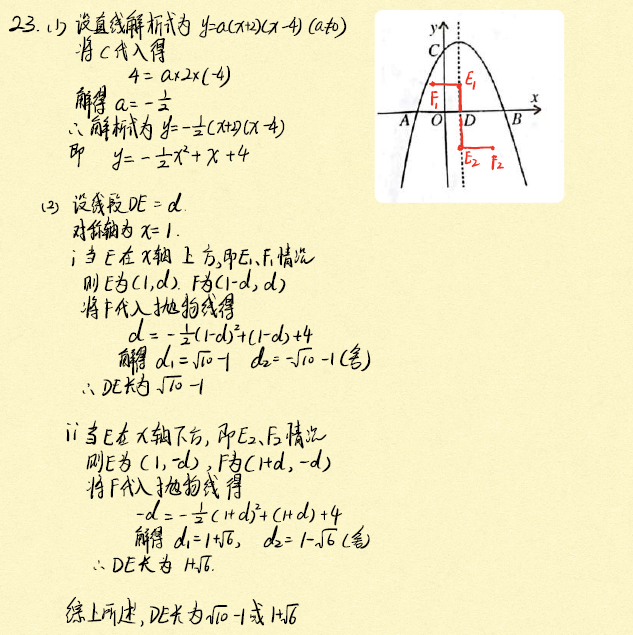 23. (1) 设直线解析式为 y=a(x+2)(x-4) (a≠0)
将C代入得
4 = a×2×(-4)
解得 a = -1/2
∴ 解析式为 y=-1/2(x+2)(x-4)
即 y=-1/2x²+x+4
y
C
E₁
F₁
x
A O D B
E₂ F₂
(2) 设线段DE = d.
对称轴为 x=1.
i 当E在x轴上方,即E₁、F₁情况
则E为(1,d). F为(1-d, d)
将F代入抛物线得
d = -1/2(1-d)²+(1-d)+4
解得 d₁=√10-1 d₂=-√10-1(舍)
∴ DE长为 √10-1
ii 当E在x轴下方, 即E₂、F₂情况
则E为 (1,-d), F为(1+d, -d)
将F代入抛物线得
-d = -1/2(1+d)²+(1+d)+4
解得 d₁=1+√6, d₂=1-√6(舍)
∴ DE长为 1+√6.
综上所述, DE长为√10-1或1+√6